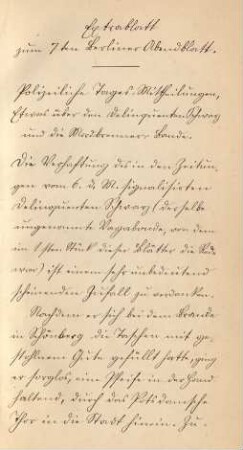 Extrablatt
zum 7ten Berliner Abendblatt.
Polizeiliche Tages-Mittheilungen,
Etwas über den Delinquenten Schwarz
und die Mordbrenner-Bande.
Die Verhaftung des in den Zeitun-
gen vom 6. d. M. signalisirten
Delinquenten Schwarz (derselbe
ungenannte Vagabonde, von dem
im 1sten Stück dieser Blätter die Rede
war) ist einem sehr unbedeutend
scheinenden Zufall zu verdanken.
Nachdem er sich bei dem Brande
in Schönberg die Taschen mit ge-
stohlnem Gute gefüllt hatte, ging
er sorglos, eine Pfeife in der Hand
haltend, durch das Potsdamsche
Thor in die Stadt hinein. Zu-